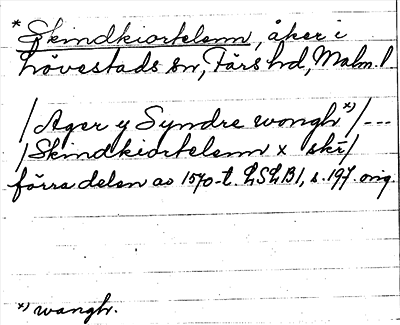 * Skindkiortelenn, åker i
Lövestads sn, Färs hd, Malm. l.
/Ager y Syndre wongh x)/---
/Skindkiortelenn x skr/
förra delen av 1570-t. LSLB 1, s. 197. orig.
x) wangh.